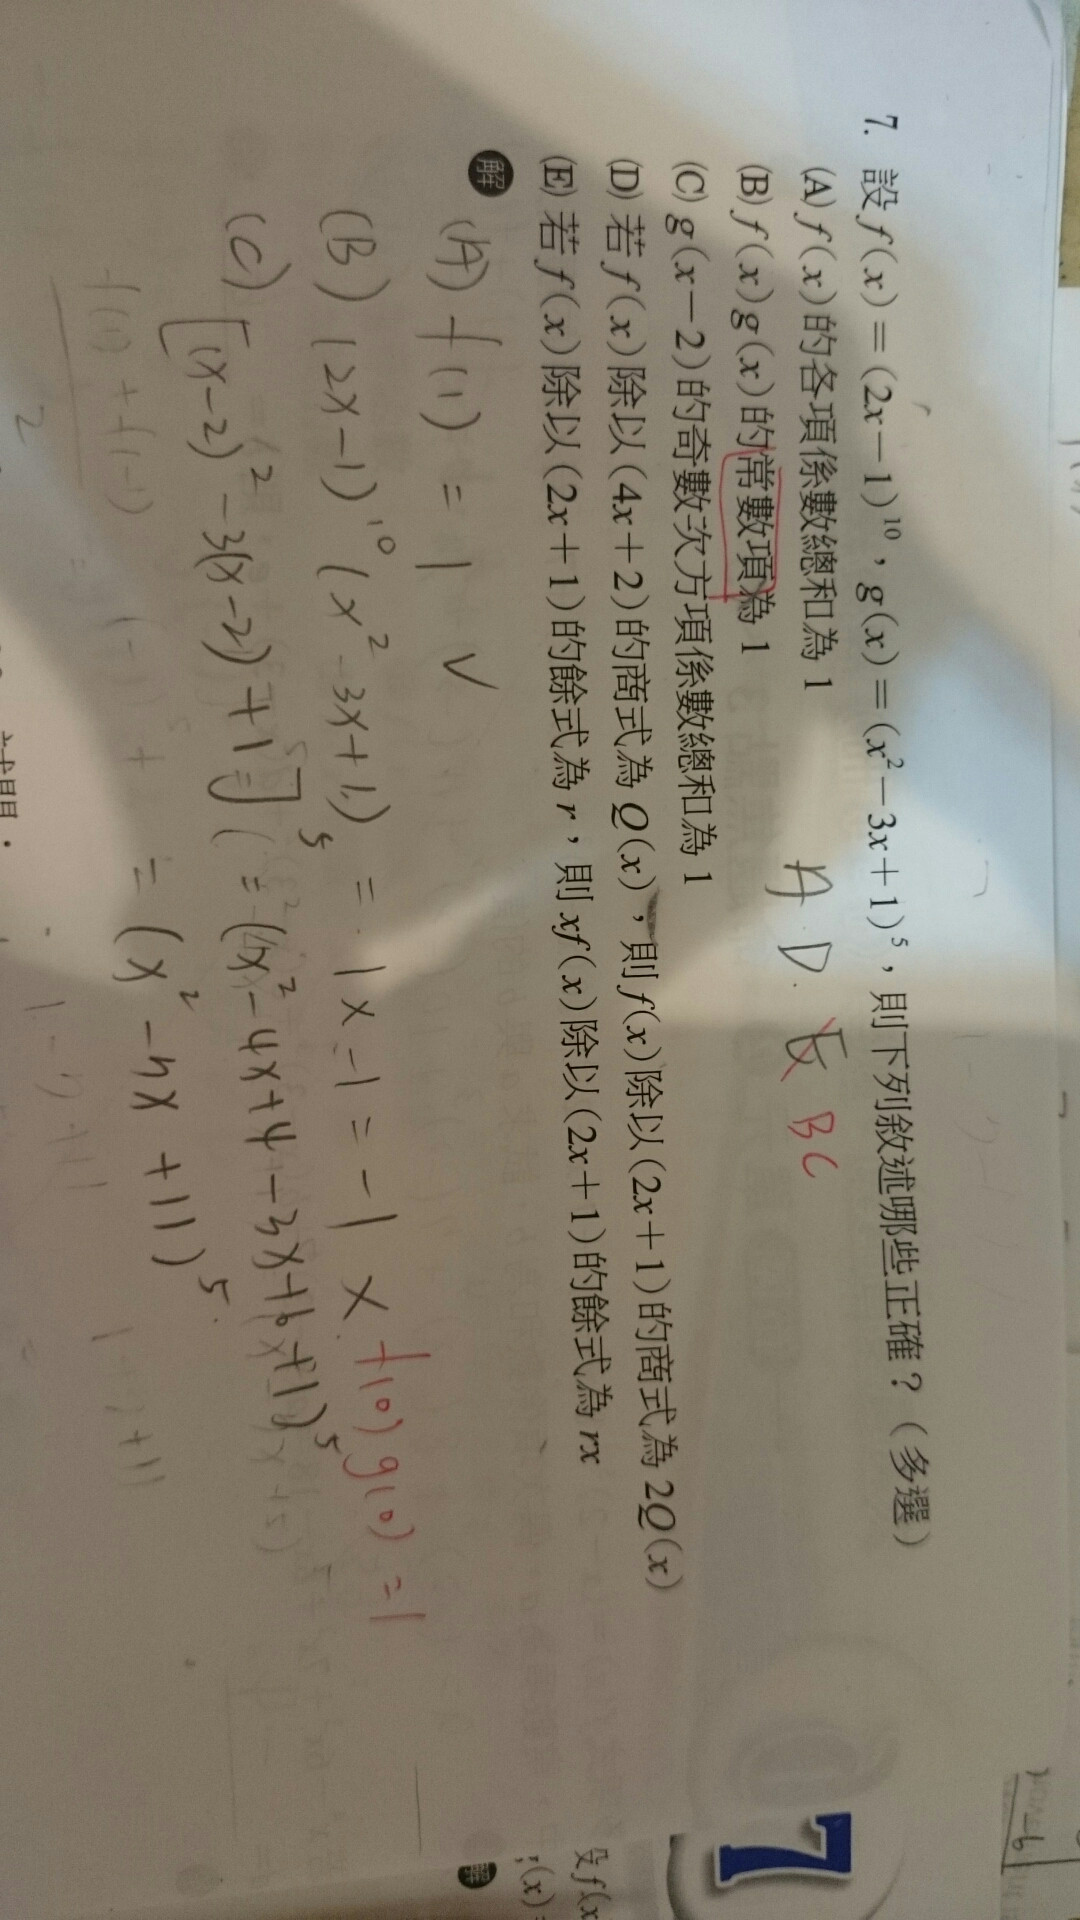 7. 設f(x)=(2x-1)¹⁰,g(x)=(x²-3x+1)⁵,則下列敘述哪些正確?(多選)
A.D. E BC
(A) f(x)的各項係數總和為1
(B) f(x)g(x)的常數項為1
(C) g(x-2)的奇數次方項係數總和為1
(D) 若f(x)除以(4x+2)的商式為Q(x),則f(x)除以(2x+1)的商式為2Q(x)
(E) 若f(x)除以(2x+1)的餘式為r,則xf(x)除以(2x+1)的餘式為rx
解
(A) f(1) = 1 ✓
f(0)g(0)=1
(B) (2x-1)¹⁰ (x²-3x+1) = 1x-1=-1 ×
(C) [(x-2)²-3(x-2)+1]⁵ = (x²-4x+4-3x+6+1)⁵
= (x²-7x+11)⁵
f(1)+f(-1)
2
7
設f(x
解